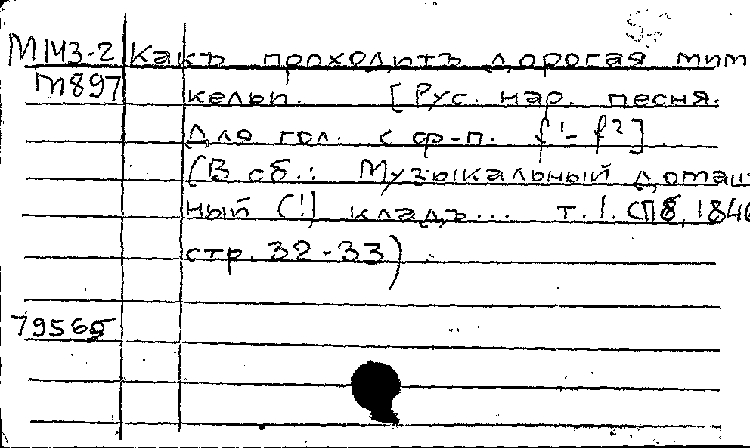 М143-2 Какъ проходитъ дорогая мим
М897 кельи. [Рус. нар. песня.
Для гол. с ф-п. f¹-f²]
(В сб.: Музыкальный доташ
ный (!) кладъ... т. 1. СПб, 1846
стр. 32-33)
79565